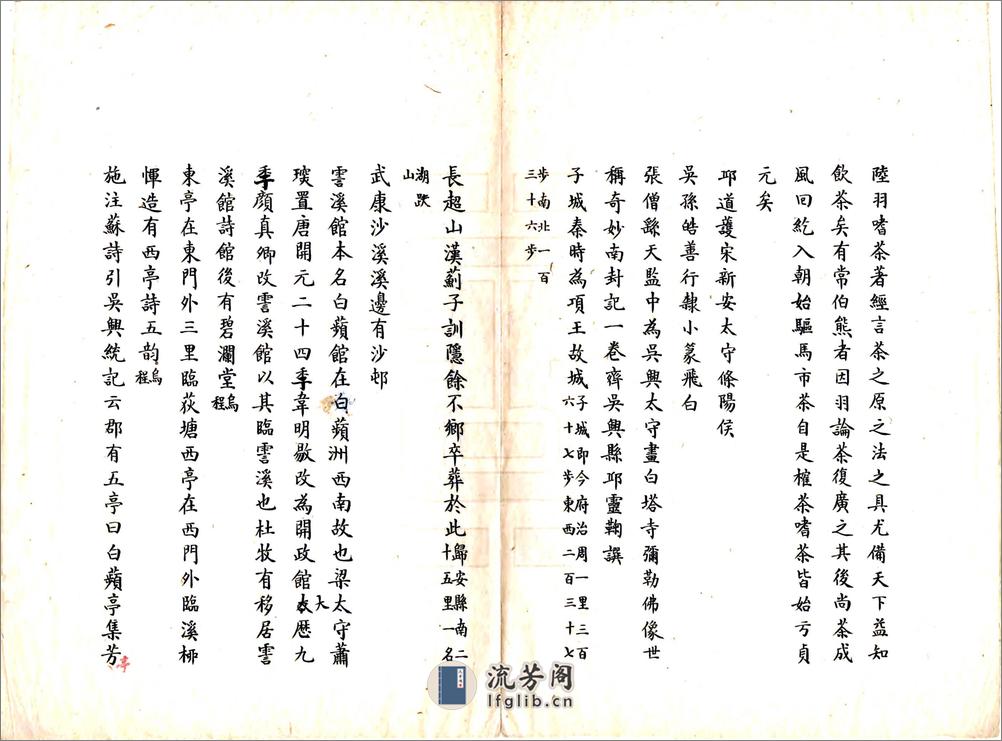 陸羽嗜茶著經言茶之原之法之具尤備天下益知
飲茶矣有常伯熊者因羽論茶復廣之其後尚茶成
風回紇入朝始驅馬市茶自是榷茶嗜茶皆始亏貞
元矣
邱道護宋新安太守條陽侯
吳孫皓善行隸小篆飛白
張僧繇天監中為吳興太守畫白塔寺彌勒佛像世
稱奇妙南封記一卷齊吳興縣邱靈鞠譔
子城秦時為項王故城子城即今府治周一里三百六十七步東西二百三十七
步南北一百三十六步
長超山漢薊子訓隱餘不鄉卒葬於此歸安縣南二十五里一名
湖趺山
武康沙溪溪邊有沙邨
霅溪館本名白蘋館在白蘋洲西南故也梁太守蕭
琛置唐開元二十四秊韋明敭改為開政館大歷九
秊顏真卿改霅溪館以其臨霅溪也杜牧有移居霅
溪館詩館後有碧瀾堂烏程
東亭在東門外三里臨荻塘西亭在西門外臨溪栁
惲造有西亭詩五韵烏程
施注蘇詩引吳興統記云郡有五亭曰白蘋亭集芳
亭
流芳阁
lfglib.cn